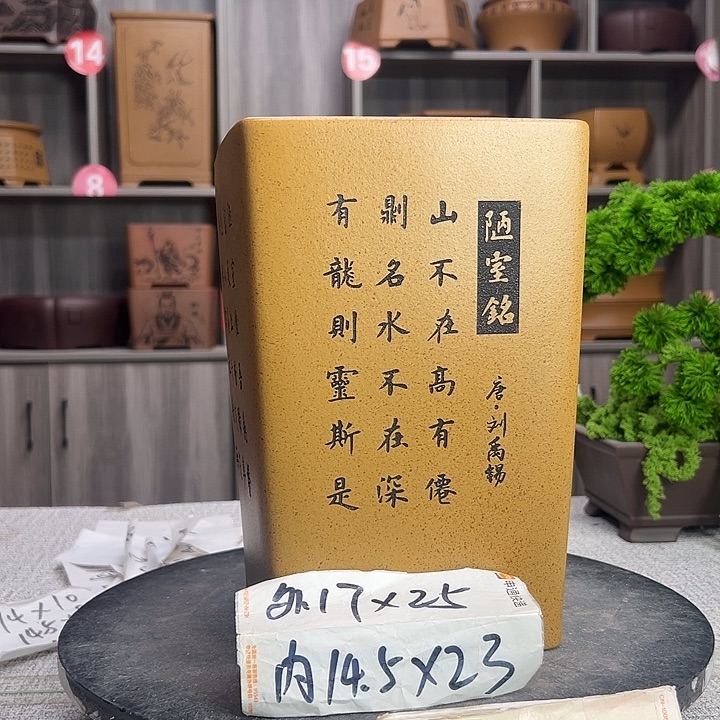 陋室銘
唐·刘禹錫
山不在高有僊
則名水不在深
有龍則靈斯是
外17×25
内14.5×23
14
15
8